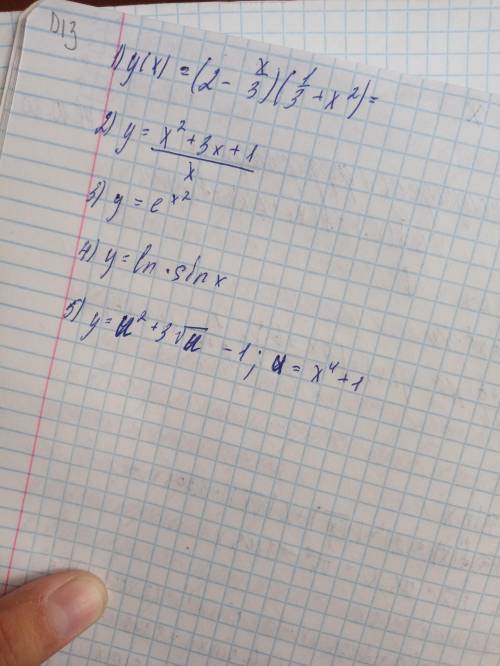 D13
1) y(x) = (2 - x/3)(1/3 + x²) =
2) y = x² + 3x + 1 / x
3) y = e^x²
4) y = ln · sin x
5) y = u² + 3√u - 1; u = x⁴ + 1